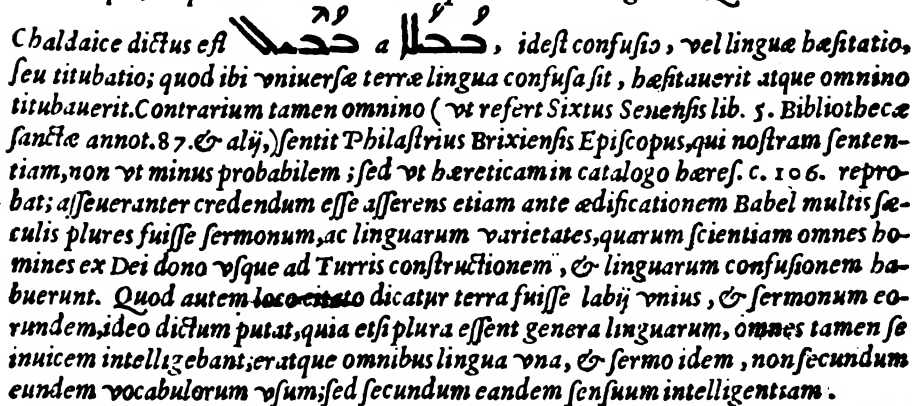 Chaldaice dictus eſt a , ideſt confuſio, vel linguæ hæſitatio,
ſeu titubatio; quod ibi vniuerſæ terræ lingua confuſa ſit, hæſitauerit atque omnino
titubauerit. Contrarium tamen omnino (vt refert Sixtus Senenſis lib. 5. Bibliothecæ
ſanctæ annot. 87. & alij,) ſentit Philaſtrius Brixienſis Epiſcopus, qui noſtram ſenten-
tiam, non vt minus probabilem; ſed vt hæreticam in catalogo hæreſ. c. 106. repro-
bat; aſſeueranter credendum eſſe aſſerens etiam ante ædificationem Babel multis ſæ-
culis plures fuiſſe ſermonum, ac linguarum varietates, quarum ſcientiam omnes ho-
mines ex Dei dono vſque ad Turris conſtructionem, & linguarum confuſionem ha-
buerunt. Quod autem loco citato dicatur terra fuiſſe labij vnius, & ſermonum eo-
rundem, ideo dictum putat, quia etſi plura eſſent genera linguarum, omnes tamen ſe
inuicem intelligebant; eratque omnibus lingua vna, & ſermo idem, non ſecundum
eundem vocabulorum vſum; ſed ſecundum eandem ſenſuum intelligentiam.